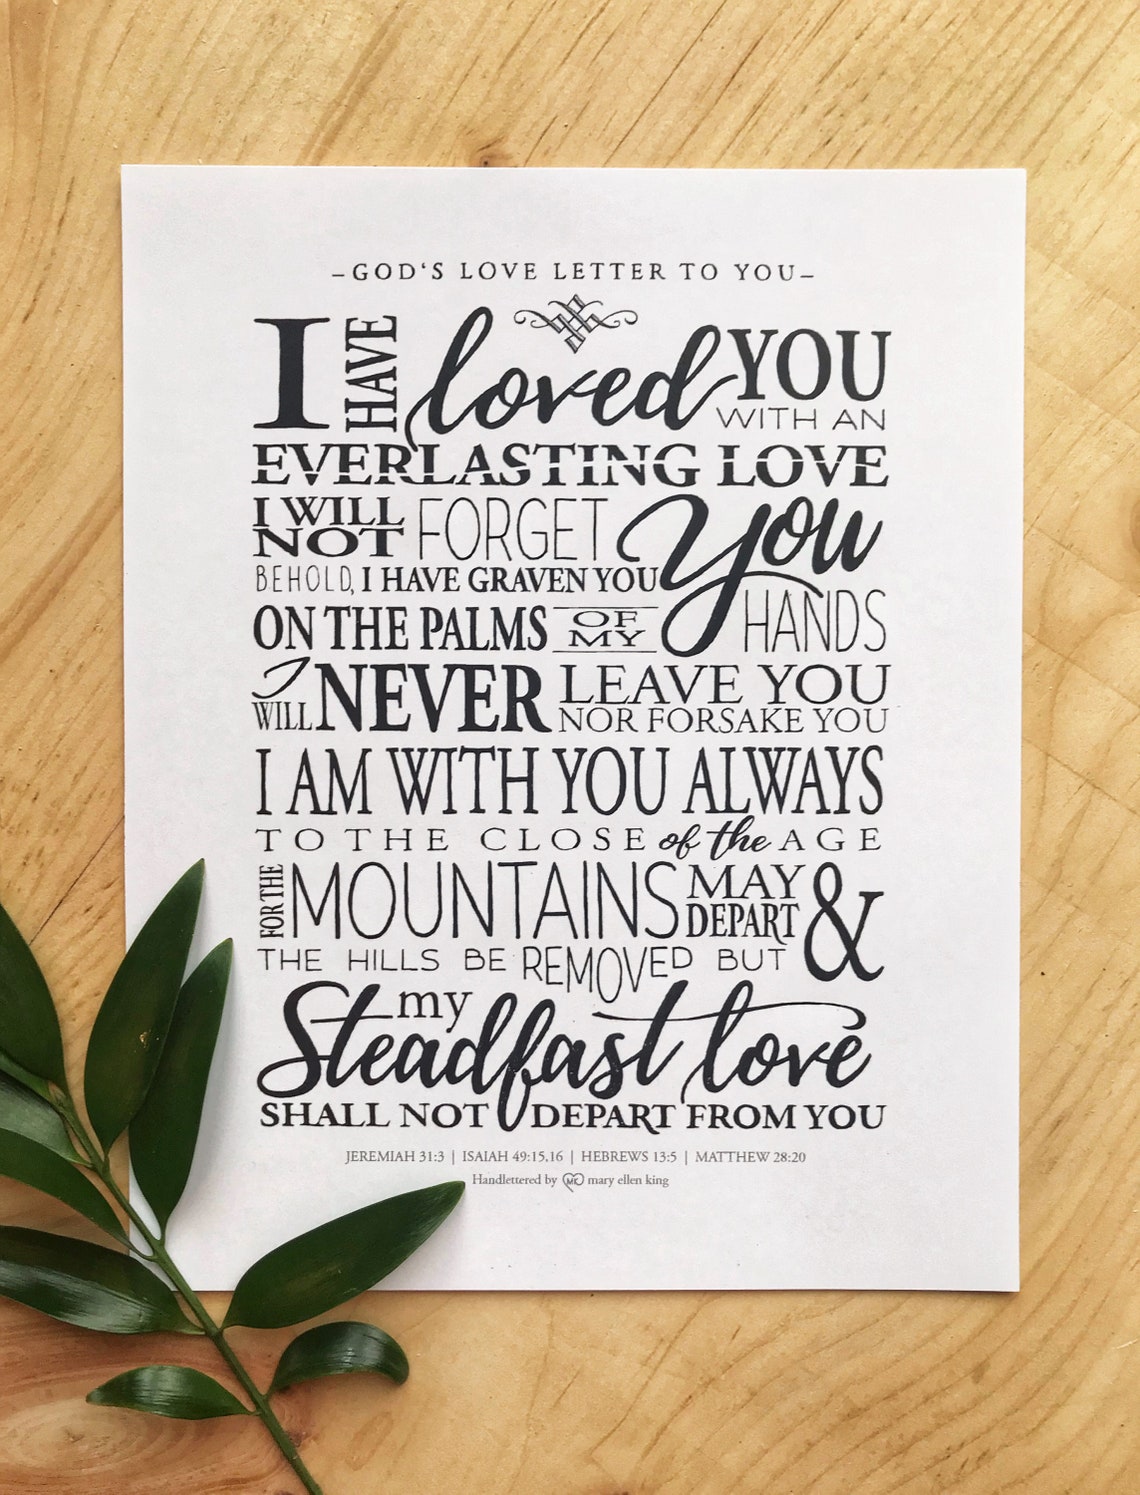 –GOD'S LOVE LETTER TO YOU–
I HAVE loved YOU
WITH AN
EVERLASTING LOVE
I WILL
NOT FORGET you
BEHOLD, I HAVE GRAVEN YOU
ON THE PALMS OF MY HANDS
I WILL NEVER LEAVE YOU
NOR FORSAKE YOU
I AM WITH YOU ALWAYS
TO THE CLOSE of the AGE
FOR THE MOUNTAINS MAY DEPART &
THE HILLS BE REMOVED BUT
my
Steadfast love
SHALL NOT DEPART FROM YOU
JEREMIAH 31:3 | ISAIAH 49:15,16 | HEBREWS 13:5 | MATTHEW 28:20
Handlettered by MK mary ellen king